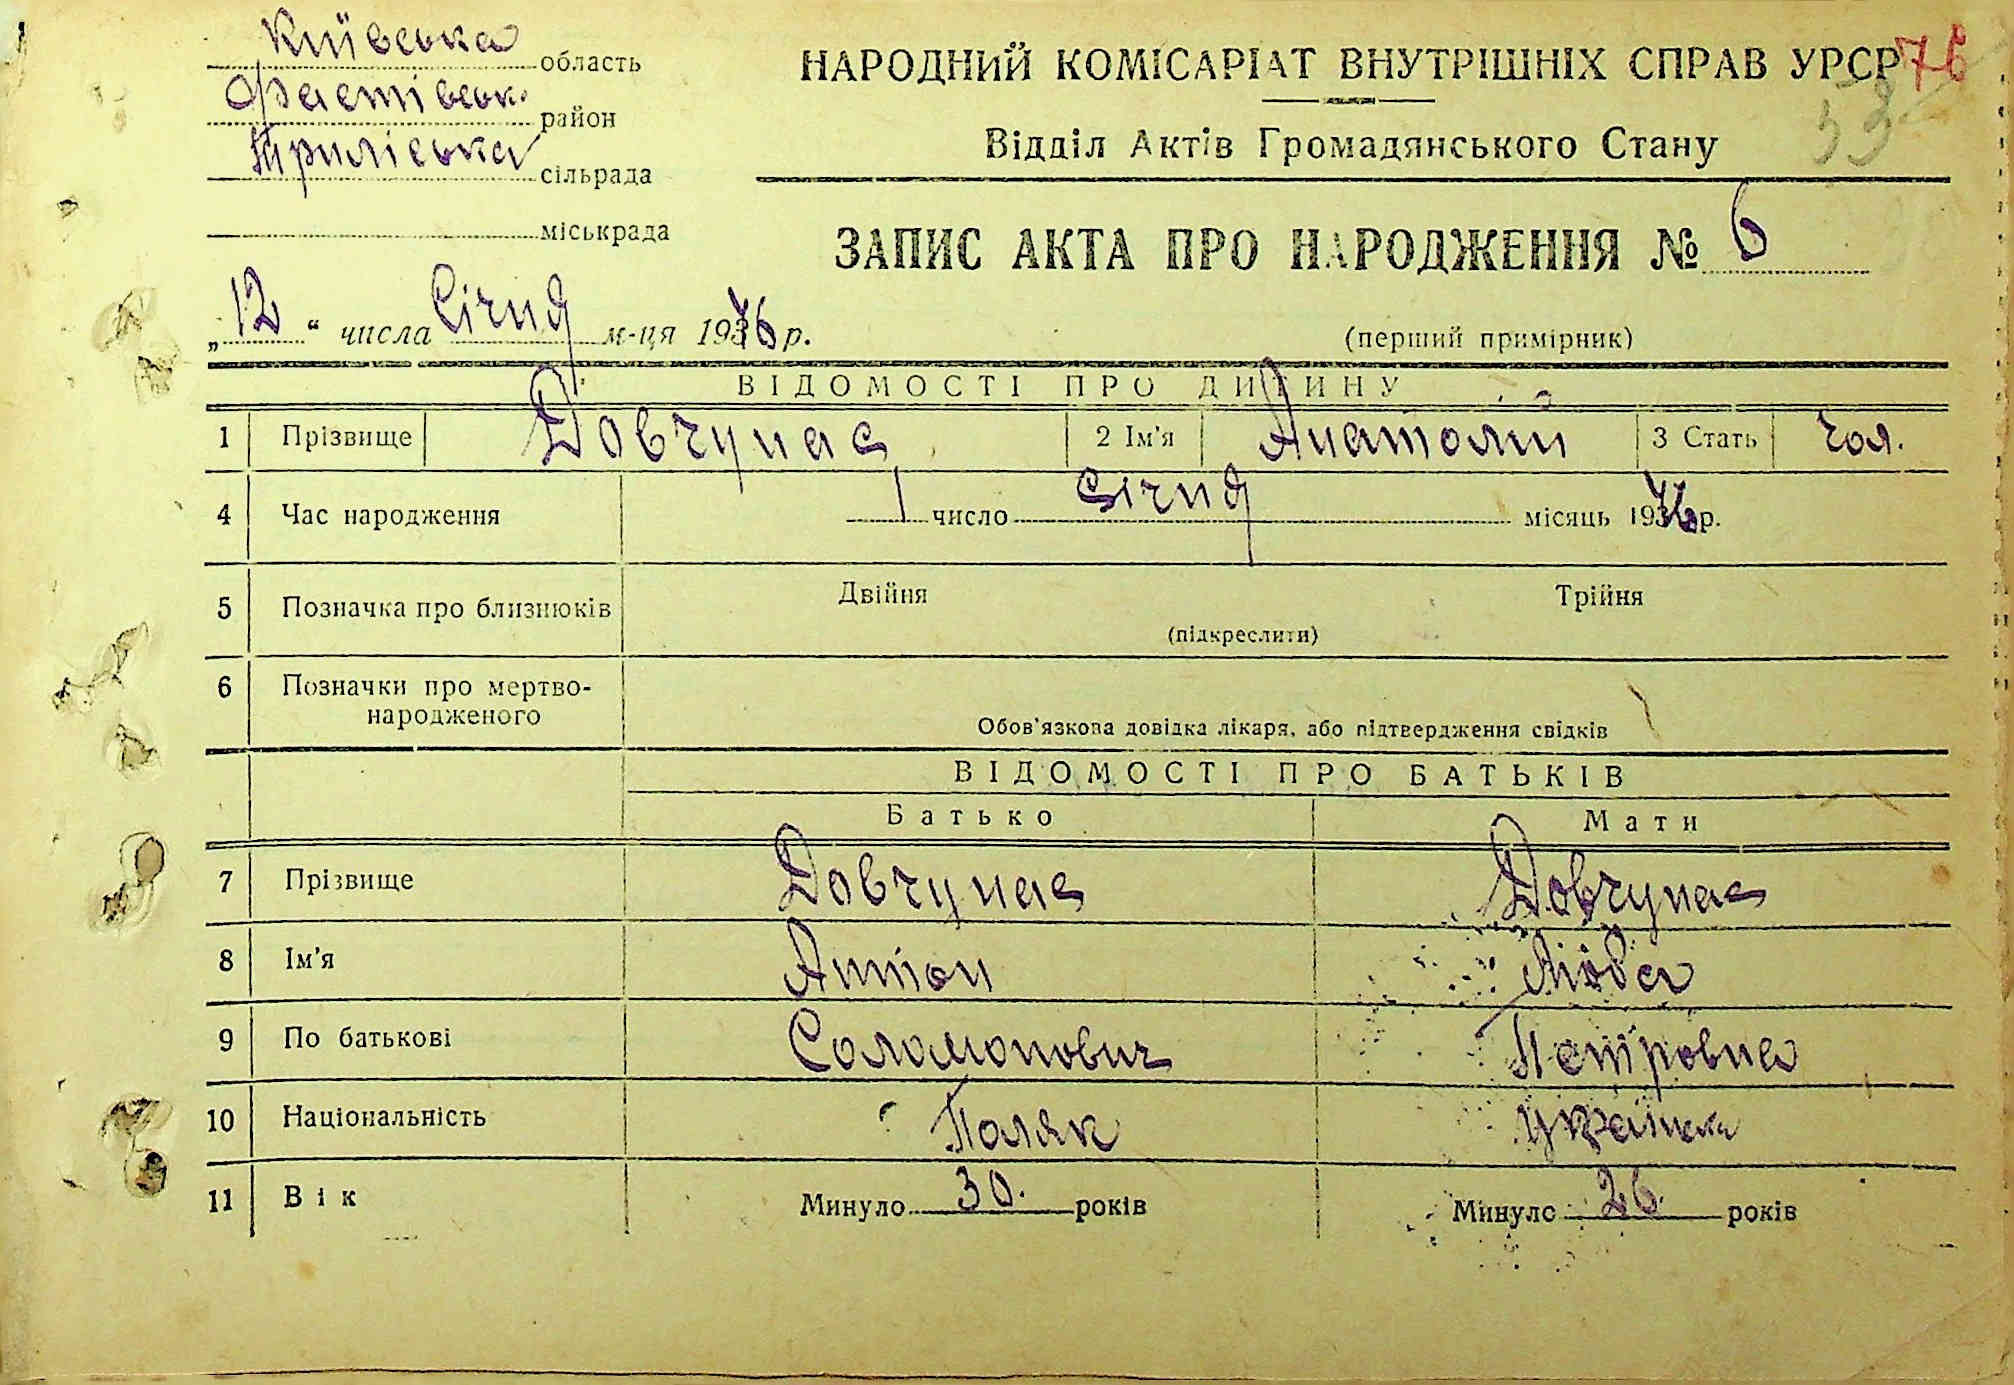 Київська область
Фастівськ. район
Триліська сільрада
міськрада
НАРОДНИЙ КОМІСАРІАТ ВНУТРІШНІХ СПРАВ УРСР
76
53
Відділ Актів Громадянського Стану
ЗАПИС АКТА ПРО НАРОДЖЕННЯ № 6
„12“ числа Січня м-ця 1946 р.
(перший примірник)
ВІДОМОСТІ ПРО ДИТИНУ
1 Прізвище Довгупас 2 Ім'я Анатолій 3 Стать чол.
4 Час народження 1 число Січня місяць 1946 р.
5 Позначка про близнюків Двійня Трійня
(підкреслити)
6 Позначки про мертво-
народженого
Обов'язкова довідка лікаря, або підтвердження свідків
ВІДОМОСТІ ПРО БАТЬКІВ
Батько Мати
7 Прізвище Довгупас Довгупас
8 Ім'я Антон Люба
9 По батькові Соломонович Петровна
10 Національність Поляк Українка
11 Вік Минуло 30. років Минуло 26. років